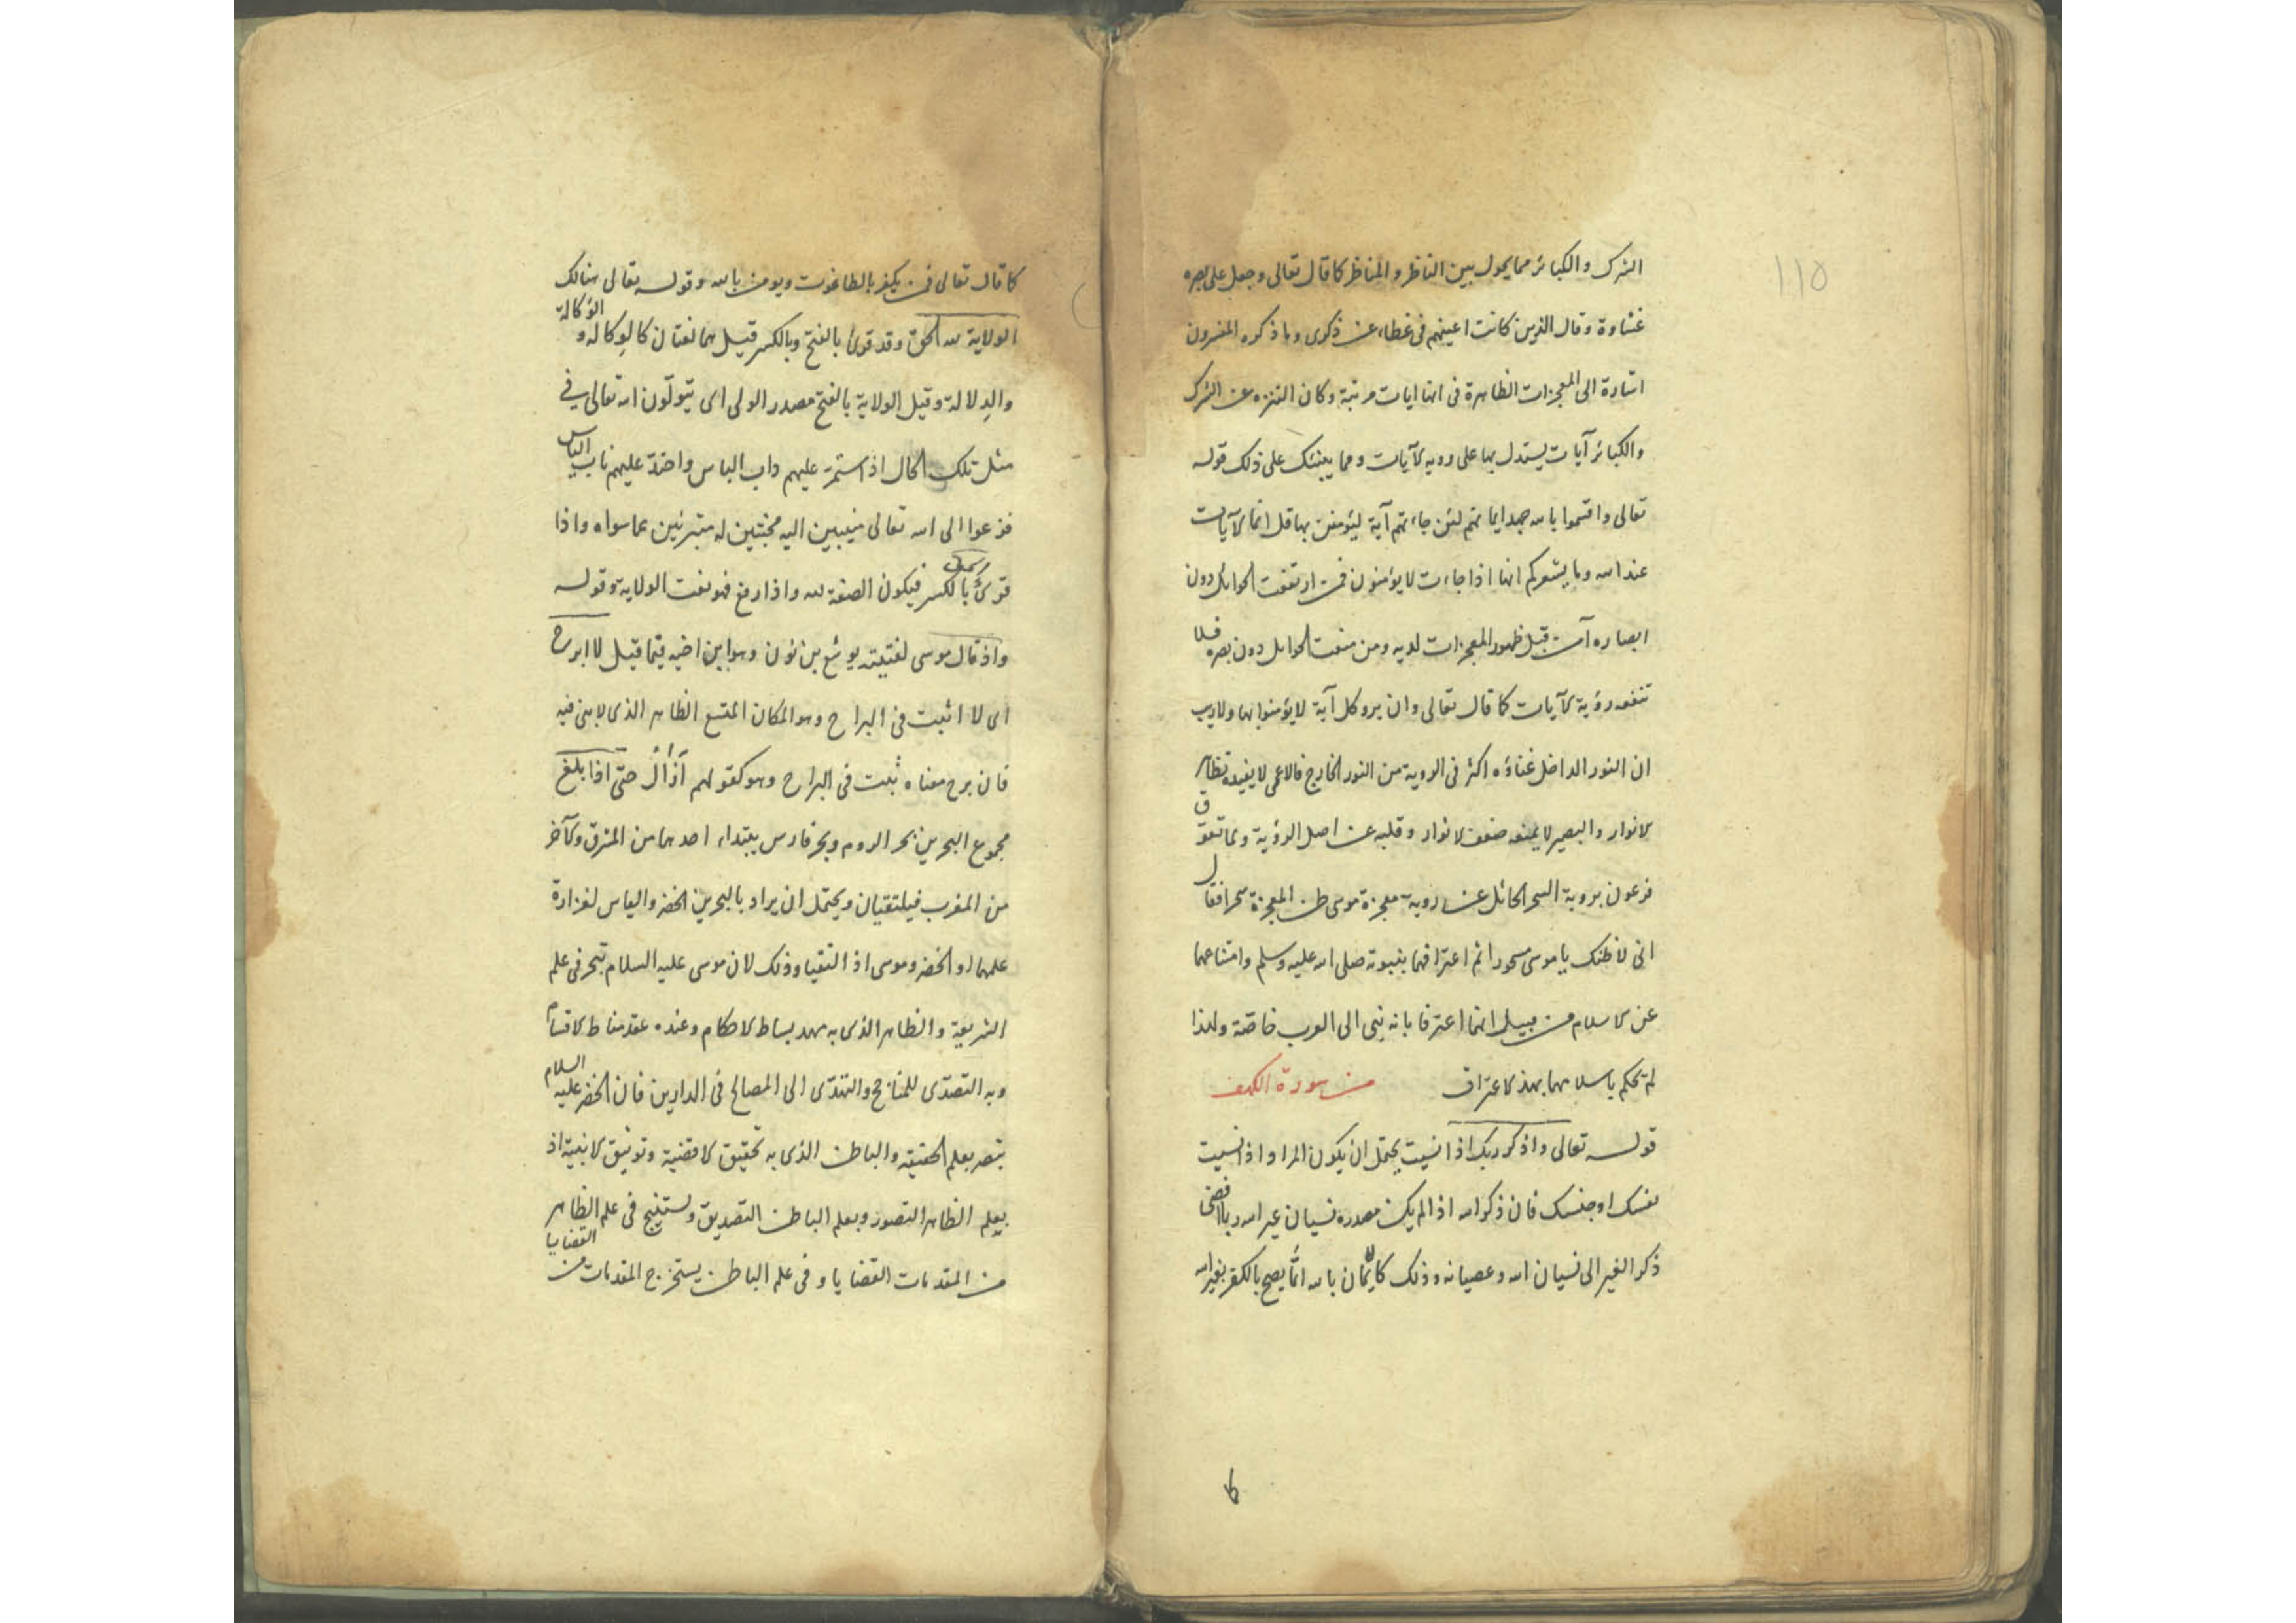 ١١٥
الشرك والكبائر مما يحول بين الناظر والمناظر كما قال تعالى وجعل على بصره
غشاوة وقال الذين كانت اعينهم فى غطاء عن ذكرى وما ذكره المفسرون
اشارة الى المعجزات الظاهرة فى انها ايات مرتبة وكان التنزه عن الشرك
والكبائر آيات يستدل بها على روية الآيات ومما يبنئك على ذلك قوله
تعالى واقسموا بالله جهد ايمانهم لئن جاءتهم آية ليؤمنن بها قل انما الآيات
عند الله وما يشعركم انها اذا جاءت لا يؤمنون فمن ارتفعت الحوائل دون
ابصاره آمن قبل ظهور المعجزات لديه ومن منعت الحوايل دون بصره فلا
تنفعه رؤية الآيات كما قال تعالى وان يروا كل آية لا يؤمنوا بها ولا ريب
ان النور الداخل غناؤه اكثر فى الروية من النور الخارج فالاعمى لا يفيده تظاهر
الانوار والبصير لا يمنعه ضعف الانوار وقلبه عن اصل الرؤية ولما تعوق
فرعون بروية السحر الحائل عن روية معجزة موسى ظن المعجزة سحرا فقال
انى لاظنك يا موسى مسحورا ثم اعترافهما بنبوته صلى الله عليه وسلم وامتناعهما
عن الاسلام من قبيل انهما اعترفا بانه نبى الى العرب خاصة ولهذا
لم تحكم باسلامهما بهذا الاعتراف من سورة الكهف
قوله تعالى واذكر ربك اذا نسيت يحتمل ان يكون المراد اذا نسيت
نفسك او جنسك فان ذكر الله اذا لم يكن مصدره نسيان غير الله ربما افضى
ذكر الغير الى نسيان الله وعصيانه وذلك كالايمان بالله انما يصح بالكفر بغير الله
كما قال تعالى فمن يكفر بالطاغوت ويومن بالله وقوله تعالى هنالك
الولاية لله الحق وقد قرئ بالفتح وبالكسر قيل هما لغتان كالوِكالة والوَكالة
والدِلالة وقيل الولاية بالفتح مصدر الولى اى يتولّون الله تعالى فى
مثل تلك الحال اذا استمرّ عليهم داب الباس واحتدّ عليهم ناب الياس
فزعوا الى الله تعالى منيبين اليه مخبتين له متبرئين عما سواه واذا
قرئ بالكسر فيكون الصفة لله واذا رفع فهو نعت الولاية وقوله
واذ قال موسى لفتيته يوشع بن نون وهو ابن اخيه فيما قيل لا ابرح
اى لا اثبت فى البراح وهو المكان المتسع الظاهر الذى لا بنى فيه
فان برح معناه ثبت فى البراح وهو كقولهم آزال حتى اذا بلغ
مجموع البحرين بحر الروم وبحر فارس يبتداء احدهما من المشرق والآخر
من المغرب فيلتقيان ويحتمل ان يراد بالبحرين الخضر والياس لغزارة
علمهما او الخضر وموسى اذ التقيا وذلك لان موسى عليه السلام تبحر فى علم
الشريعة والظاهر الذى به مهد بساط الاحكام وعنده عقد مناط الاقسام
وبه التصدّى للمناجح والتهدّى الى المصالح فى الدارين فان الخضر عليه السلام
تبصر بعلم الحقيقة والباطن الذى به تحقيق الاقضية وتوثيق الابنية اذ
بعلم الظاهر التصور وبعلم الباطن التصديق ويستنتج فى علم الظاهر
من المقدمات القضايا وفى علم الباطن يستخرج المقدمات من القضايا